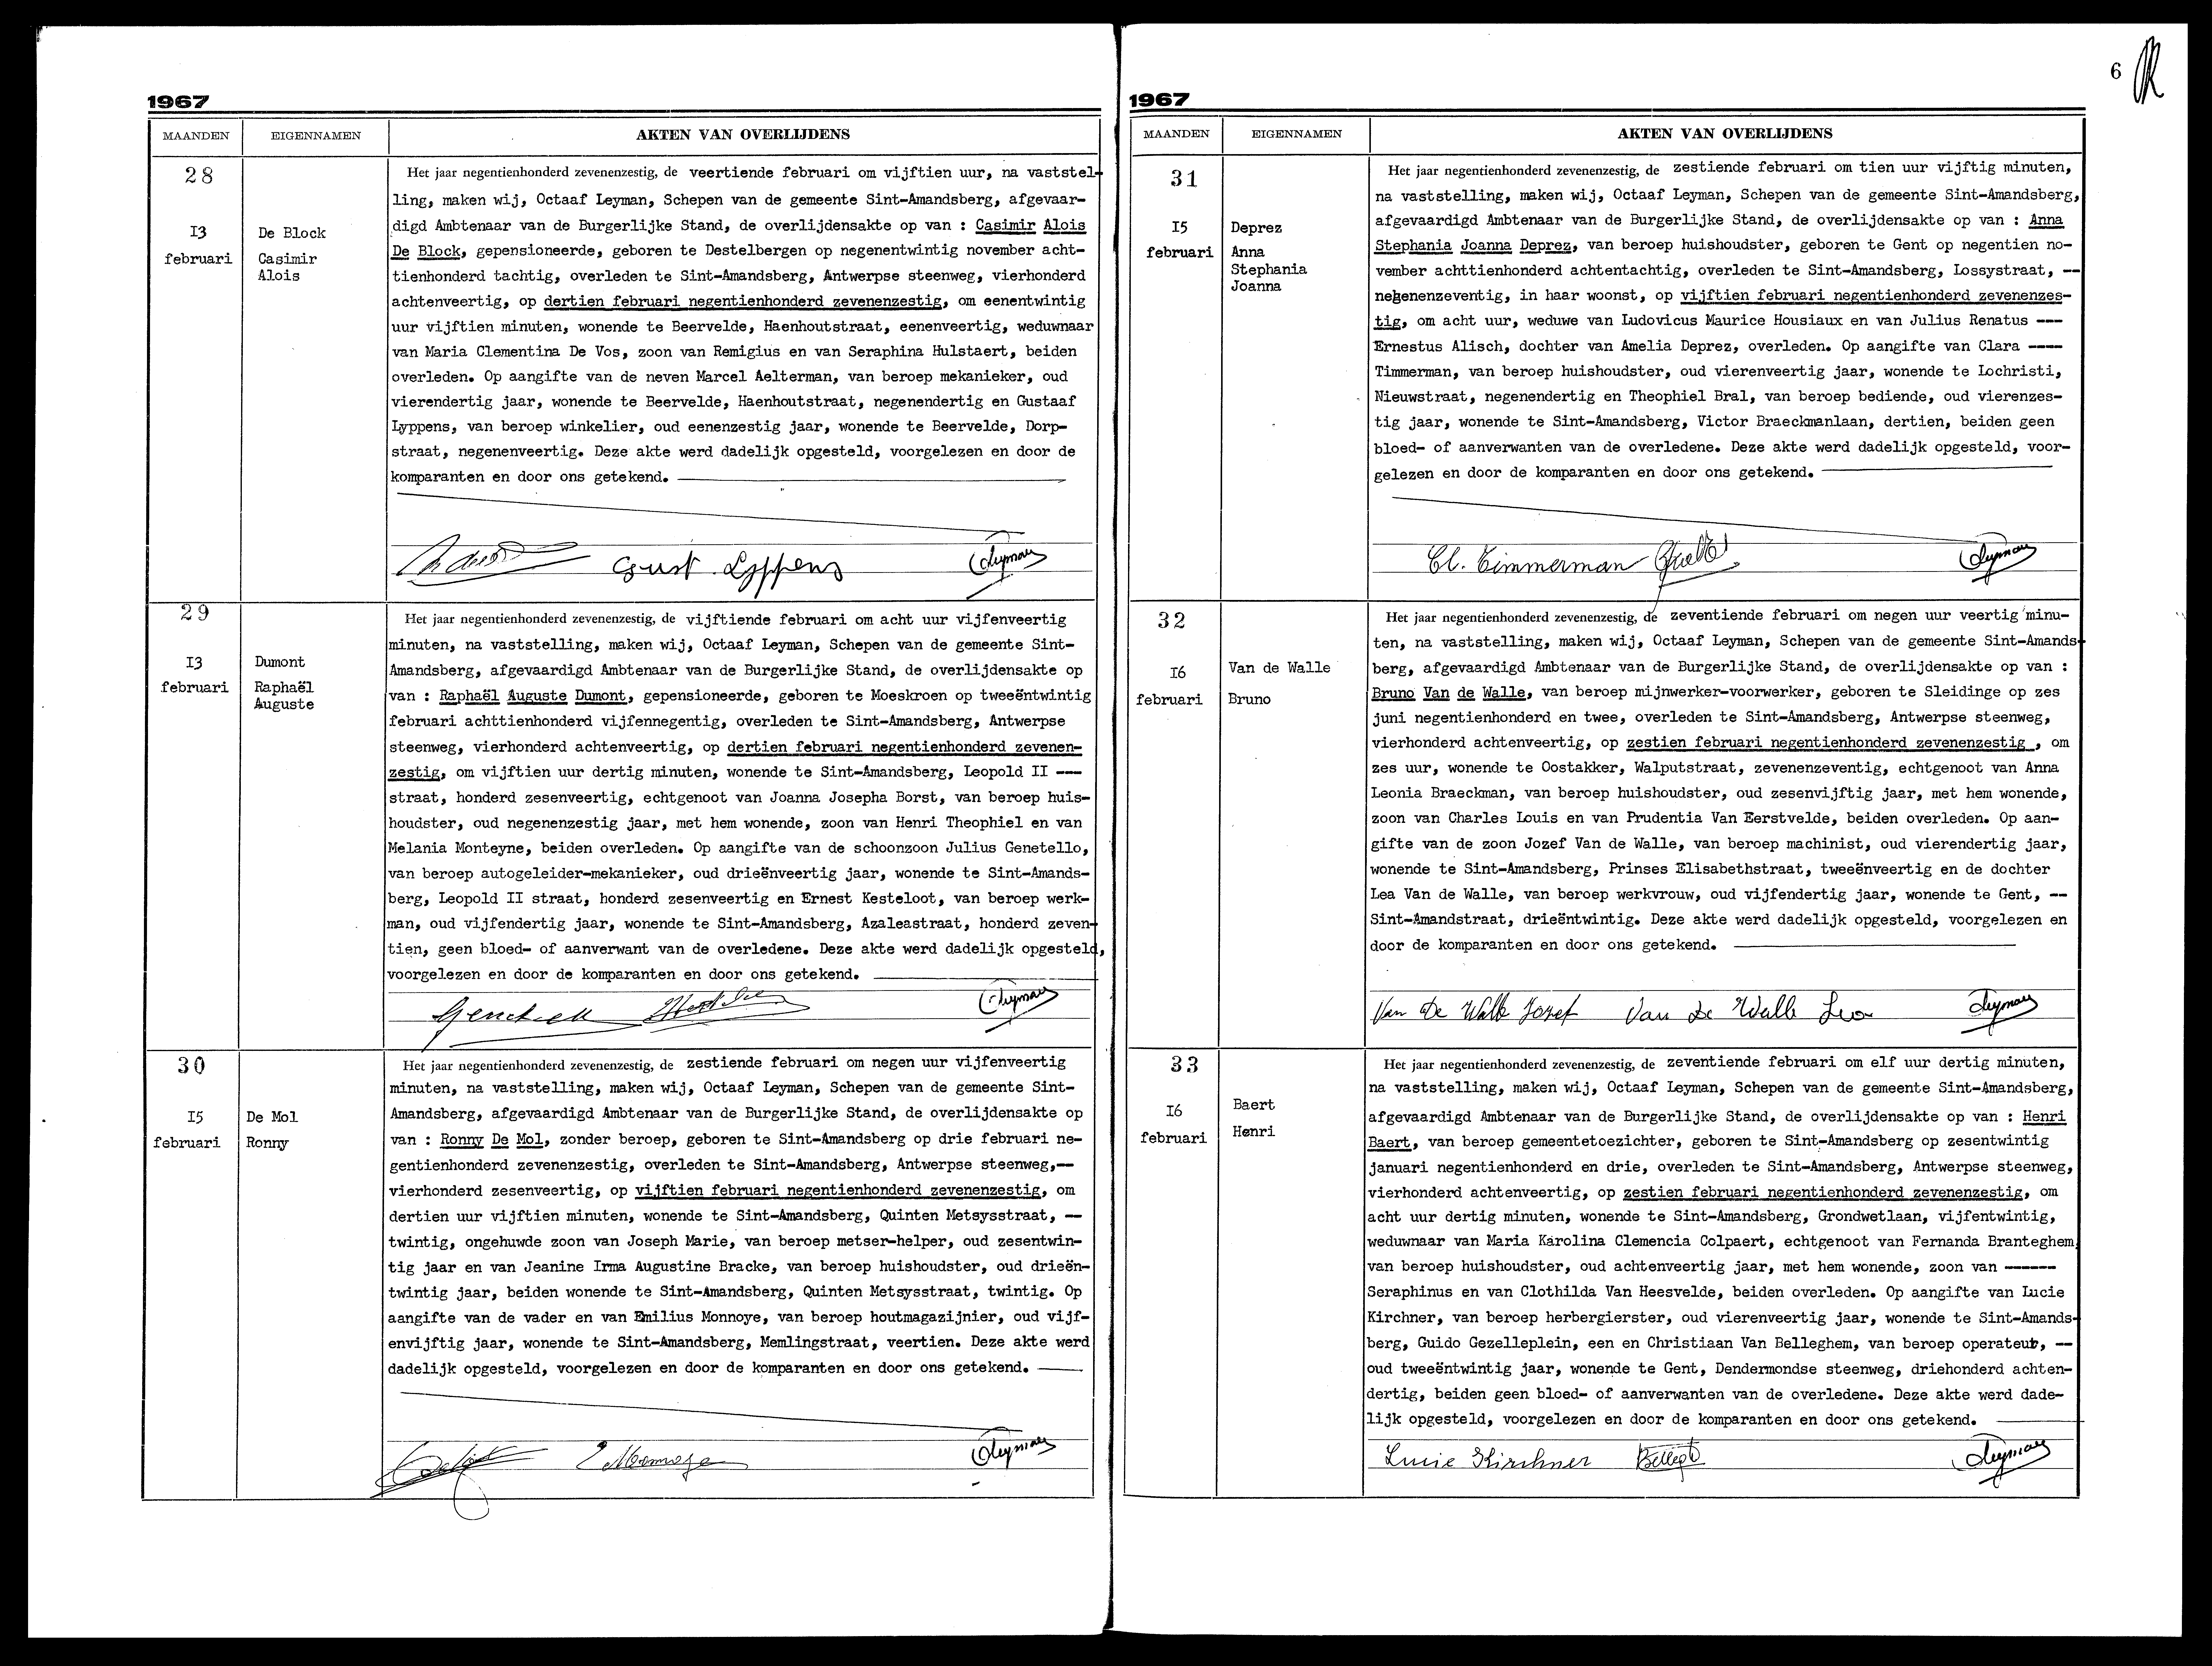 1967
MAANDEN EIGENNAMEN AKTEN VAN OVERLIJDENS
28
I3
februari
De Block
Casimir
Alois
Het jaar negentienhonderd zevenenzestig, de veertiende februari om vijftien uur, na vaststel-
ling, maken wij, Octaaf Leyman, Schepen van de gemeente Sint-Amandsberg, afgevaar-
digd Ambtenaar van de Burgerlijke Stand, de overlijdensakte op van : Casimir Alois
De Block, gepensioneerde, geboren te Destelbergen op negenentwintig november acht-
tienhonderd tachtig, overleden te Sint-Amandsberg, Antwerpse steenweg, vierhonderd
achtenveertig, op dertien februari negentienhonderd zevenenzestig, om eenentwintig
uur vijftien minuten, wonende te Beervelde, Haenhoutstraat, eenenveertig, weduwnaar
van Maria Clementina De Vos, zoon van Remigius en van Seraphina Hulstaert, beiden
overleden. Op aangifte van de neven Marcel Aelterman, van beroep mekanieker, oud
vierendertig jaar, wonende te Beervelde, Haenhoutstraat, negenendertig en Gustaaf
Lyppens, van beroep winkelier, oud eenenzestig jaar, wonende te Beervelde, Dorp-
straat, negenenveertig. Deze akte werd dadelijk opgesteld, voorgelezen en door de
komparanten en door ons getekend.
Gust. Lyppens Leyman
29
I3
februari
Dumont
Raphaël
Auguste
Het jaar negentienhonderd zevenenzestig, de vijftiende februari om acht uur vijfenveertig
minuten, na vaststelling, maken wij, Octaaf Leyman, Schepen van de gemeente Sint-
Amandsberg, afgevaardigd Ambtenaar van de Burgerlijke Stand, de overlijdensakte op
van : Raphaël Auguste Dumont, gepensioneerde, geboren te Moeskroen op tweeëntwintig
februari achttienhonderd vijfennegentig, overleden te Sint-Amandsberg, Antwerpse
steenweg, vierhonderd achtenveertig, op dertien februari negentienhonderd zevenen-
zestig, om vijftien uur dertig minuten, wonende te Sint-Amandsberg, Leopold II ---
straat, honderd zesenveertig, echtgenoot van Joanna Josepha Borst, van beroep huis-
houdster, oud negenenzestig jaar, met hem wonende, zoon van Henri Theophiel en van
Melania Monteyne, beiden overleden. Op aangifte van de schoonzoon Julius Genetello,
van beroep autogeleider-mekanieker, oud drieënveertig jaar, wonende te Sint-Amands-
berg, Leopold II straat, honderd zesenveertig en Ernest Kesteloot, van beroep werk-
man, oud vijfendertig jaar, wonende te Sint-Amandsberg, Azaleastraat, honderd zeven-
tien, geen bloed- of aanverwant van de overledene. Deze akte werd dadelijk opgesteld,
voorgelezen en door de komparanten en door ons getekend.
Leyman
30
I5
februari
De Mol
Ronny
Het jaar negentienhonderd zevenenzestig, de zestiende februari om negen uur vijfenveertig
minuten, na vaststelling, maken wij, Octaaf Leyman, Schepen van de gemeente Sint-
Amandsberg, afgevaardigd Ambtenaar van de Burgerlijke Stand, de overlijdensakte op
van : Ronny De Mol, zonder beroep, geboren te Sint-Amandsberg op drie februari ne-
gentienhonderd zevenenzestig, overleden te Sint-Amandsberg, Antwerpse steenweg,--
vierhonderd zesenveertig, op vijftien februari negentienhonderd zevenenzestig, om
dertien uur vijftien minuten, wonende te Sint-Amandsberg, Quinten Metsysstraat, --
twintig, ongehuwde zoon van Joseph Marie, van beroep metser-helper, oud zesentwin-
tig jaar en van Jeanine Irma Augustine Bracke, van beroep huishoudster, oud drieën-
twintig jaar, beiden wonende te Sint-Amandsberg, Quinten Metsysstraat, twintig. Op
aangifte van de vader en van Emilius Monnoye, van beroep houtmagazijnier, oud vijf-
envijftig jaar, wonende te Sint-Amandsberg, Memlingstraat, veertien. Deze akte werd
dadelijk opgesteld, voorgelezen en door de komparanten en door ons getekend.
E Monnoye Leyman
6
1967
MAANDEN EIGENNAMEN AKTEN VAN OVERLIJDENS
31
I5
februari
Deprez
Anna
Stephania
Joanna
Het jaar negentienhonderd zevenenzestig, de zestiende februari om tien uur vijftig minuten,
na vaststelling, maken wij, Octaaf Leyman, Schepen van de gemeente Sint-Amandsberg,
afgevaardigd Ambtenaar van de Burgerlijke Stand, de overlijdensakte op van : Anna
Stephania Joanna Deprez, van beroep huishoudster, geboren te Gent op negentien no-
vember achttienhonderd achtentachtig, overleden te Sint-Amandsberg, Lossystraat, --
negenenzeventig, in haar woonst, op vijftien februari negentienhonderd zevenenzes-
tig, om acht uur, weduwe van Ludovicus Maurice Housiaux en van Julius Renatus ---
Ernestus Alisch, dochter van Amelia Deprez, overleden. Op aangifte van Clara ----
Timmerman, van beroep huishoudster, oud vierenveertig jaar, wonende te Lochristi,
Nieuwstraat, negenendertig en Theophiel Bral, van beroep bediende, oud vierenzes-
tig jaar, wonende te Sint-Amandsberg, Victor Braeckmanlaan, dertien, beiden geen
bloed- of aanverwanten van de overledene. Deze akte werd dadelijk opgesteld, voor-
gelezen en door de komparanten en door ons getekend.
Cl. Timmerman Leyman
32
I6
februari
Van de Walle
Bruno
Het jaar negentienhonderd zevenenzestig, de zeventiende februari om negen uur veertig minu-
ten, na vaststelling, maken wij, Octaaf Leyman, Schepen van de gemeente Sint-Amands-
berg, afgevaardigd Ambtenaar van de Burgerlijke Stand, de overlijdensakte op van :
Bruno Van de Walle, van beroep mijnwerker-voorwerker, geboren te Sleidinge op zes
juni negentienhonderd en twee, overleden te Sint-Amandsberg, Antwerpse steenweg,
vierhonderd achtenveertig, op zestien februari negentienhonderd zevenenzestig , om
zes uur, wonende te Oostakker, Walputstraat, zevenenzeventig, echtgenoot van Anna
Leonia Braeckman, van beroep huishoudster, oud zesenvijftig jaar, met hem wonende,
zoon van Charles Louis en van Prudentia Van Eerstvelde, beiden overleden. Op aan-
gifte van de zoon Jozef Van de Walle, van beroep machinist, oud vierendertig jaar,
wonende te Sint-Amandsberg, Prinses Elisabethstraat, tweeënveertig en de dochter
Lea Van de Walle, van beroep werkvrouw, oud vijfendertig jaar, wonende te Gent, --
Sint-Amandstraat, drieëntwintig. Deze akte werd dadelijk opgesteld, voorgelezen en
door de komparanten en door ons getekend.
Van De Walle Jozef Van De Walle Lea Leyman
33
I6
februari
Baert
Henri
Het jaar negentienhonderd zevenenzestig, de zeventiende februari om elf uur dertig minuten,
na vaststelling, maken wij, Octaaf Leyman, Schepen van de gemeente Sint-Amandsberg,
afgevaardigd Ambtenaar van de Burgerlijke Stand, de overlijdensakte op van : Henri
Baert, van beroep gemeentetoezichter, geboren te Sint-Amandsberg op zesentwintig
januari negentienhonderd en drie, overleden te Sint-Amandsberg, Antwerpse steenweg,
vierhonderd achtenveertig, op zestien februari negentienhonderd zevenenzestig, om
acht uur dertig minuten, wonende te Sint-Amandsberg, Grondwetlaan, vijfentwintig,
weduwnaar van Maria Karolina Clemencia Colpaert, echtgenoot van Fernanda Branteghem,
van beroep huishoudster, oud achtenveertig jaar, met hem wonende, zoon van ------
Seraphinus en van Clothilda Van Heesvelde, beiden overleden. Op aangifte van Lucie
Kirchner, van beroep herbergierster, oud vierenveertig jaar, wonende te Sint-Amands-
berg, Guido Gezelleplein, een en Christiaan Van Belleghem, van beroep operateur, --
oud tweeëntwintig jaar, wonende te Gent, Dendermondse steenweg, driehonderd achten-
dertig, beiden geen bloed- of aanverwanten van de overledene. Deze akte werd dade-
lijk opgesteld, voorgelezen en door de komparanten en door ons getekend.
Lucie Kirchner Leyman